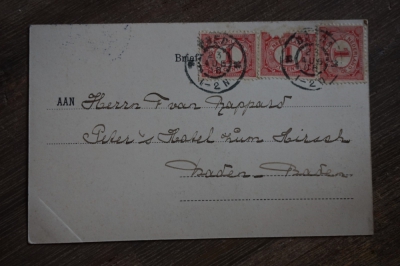 Brief
AAN Herrn F van Rappard
Peter's Hotel zum Hirsch
Baden-Baden
1
1-2N
1-2N